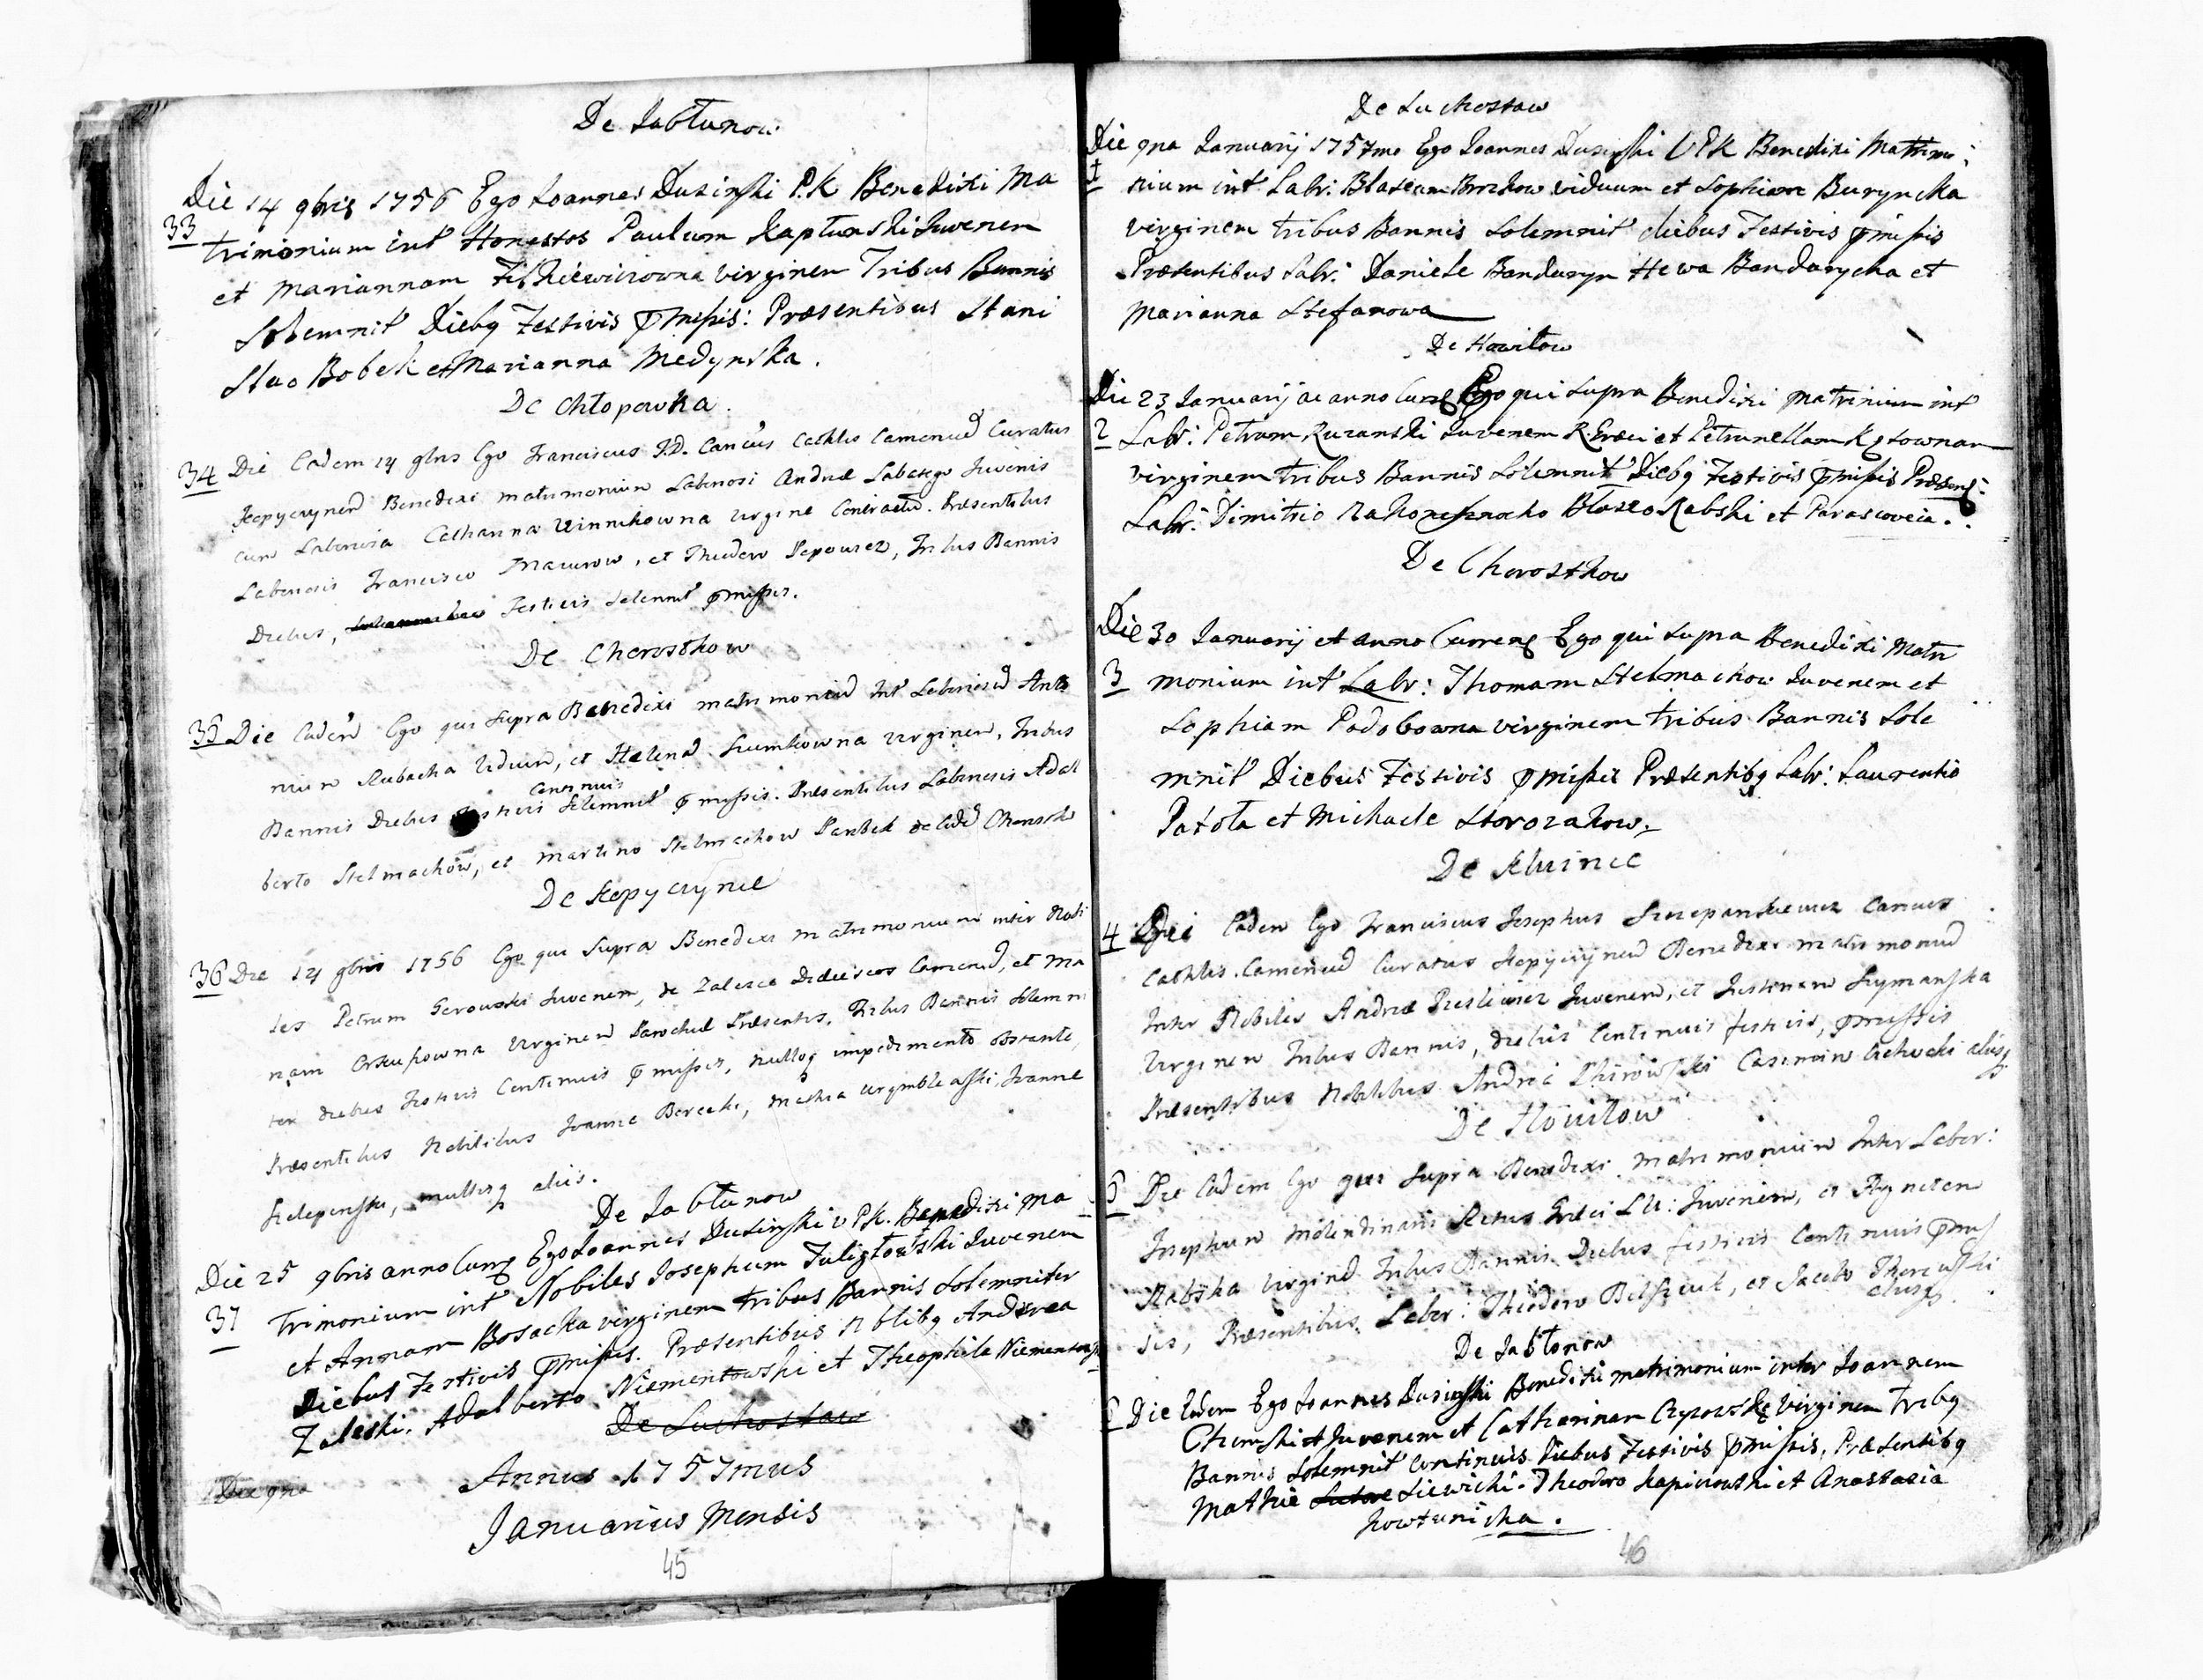 De Jabłunow
Die 14 9bris 1756 Ego Joannes Dusinski P.K Benedixi Ma
33
trimonium int Honestos Paulum Kaptunski Juvenem
et Mariannam virginem Tribus Bannis
Solemnit Diebq Festivis pmissis: Præsentibus Stani
slao Bobek et Marianna Medynska.
De Chłopowka.
34 Die Eadem 14 9bris Ego Franciscus Curatus
Kopycrynen Benedixi matrimonium Laboriosi Andreæ Juvenis
cum Laboriosa Catharina Winnikowna virgine Contractu. Præsentibus
Laboriosis Francisco et Theodoro Tribus Bannis
Diebus, Festivis Solennit pmissis.
De Chorostkow
35 Die Eadem Ego qui Supra Benedixi matrimonium Int Laboriosu Anto
nium Rubacha Viduum, et Helena virginem, Tribus
continuis
Bannis Diebus Festivis Solemnit pmissis. Præsentibus Laboriosis Adal
berto Stelmachow, et Martino Stelmachow
De Kopycrynce
36 Die 14 9bris 1756 Ego qui Supra Benedixi matrimonium inter Nobi
les Petrum Gerowski Juvenem, de Zalesce et Ma
nam Virginem Parochiæ Præsentis, Tribus Bannis Solemni
ter diebus Festivis Continuis pmissis, nulloq impedimento obstante,
Præsentibus Nobilibus Joanne Berecki, Joanne
multisq aliis.
De Jabłunow
Die 25 9bris anno Curq Ego Joannes Dusinski V P.K. Benedixi Ma
37
trimonium int Nobiles Josephum Juvenem
et Annam Bosacka virginem tribus Bannis Solemniter
Diebus Festivis pmissis. Præsentibus Nblibq Andrea
Zaleski. Adalberto Niementowski et Theophila
De Suchostaw
Annus 1757mus
Die 9na
Januarius Mensis
45
De Suchostaw
Die 9na Januarij 1757mo Ego Joannes Dusinski VPK Benedixi Matrimo
1
nium int Labr: Blasium viduum et Sophiam Buryncka
virginem tribus Bannis Solemnit diebus Festivis pmissis
Præsentibus Labr: Daniele Banduryn Hewa Bandurycha et
Marianna Stefanowa
De Howiłow
Die 23 Januarij ac anno Curq Ego qui Supra Benedixi matrinium int
2 Labr: Petrum Ruzanski Juvenem R. Græci et Petrunellam
virginem tribus Bannis Solemnit Diebq Festivis pmissis
Labr: Dimitrio Blaseo Rabski et Parascoveia.
De Chorostkow
Die 30 Januarij et anno Currenq Ego qui Supra Benedixi Matri
3 monium int Labr: Thomam Stelmachow Juvenem et
Sophiam Podobowna virginem tribus Bannis Sole
mnit Diebus Festivis pmissis Præsentibq Labr: Laurentio
Patoła et Michaele Storozakow.
De Kluince
4 Die Eadem Ego Franciscus Josephus Szczepankiewicz
Curatus Kopycrynen Benedixi matrimoniu
Inter Nobiles Andreæ Juvenem, et Justinam Szymanska
Virginem Tribus Bannis, diebus Continuis festivis, pmissis
Præsentibus Nobilibus Andrea Casimiro aliisq
De Howilow
5 Die Eadem Ego qui Supra Benedixi Matrimonium Inter Labor:
Josephum Molendinari Ritus Græci Juvenem, et Agneten
Rabska Virgine Tribus Bannis Diebus festivis Continuis pmis
sis, Præsentibus Labor: Theodoro et Jacobo
aliisq.
De Jabłonow
6 Die Eadem Ego Joannes Dusinski Benedixi matrimonium inter Joannem
Juvenem et Catharinam virginem Tribq
Bannis Solemnit Continuis Diebus Festivis pmissis, Præsentibq
Mathia Siewicki. Theodoro et Anastasia
46